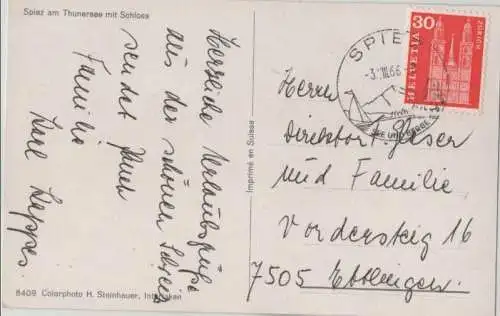 Spiez am Thunersee mit Schloss
Herzliche Urlaubsgrüße
aus der schönen Schweiz
sendet Ihnen
Familie
Karl Kappes.
8409 Colorphoto H. Steinhauer, Interlaken
Imprimé en Suisse
SPIEZ
-3.III.66
30
HELVETIA
ZÜRICH
Herrn
Direktor Glaser
und Familie
Vordersteig 16
7505 Ettlingen